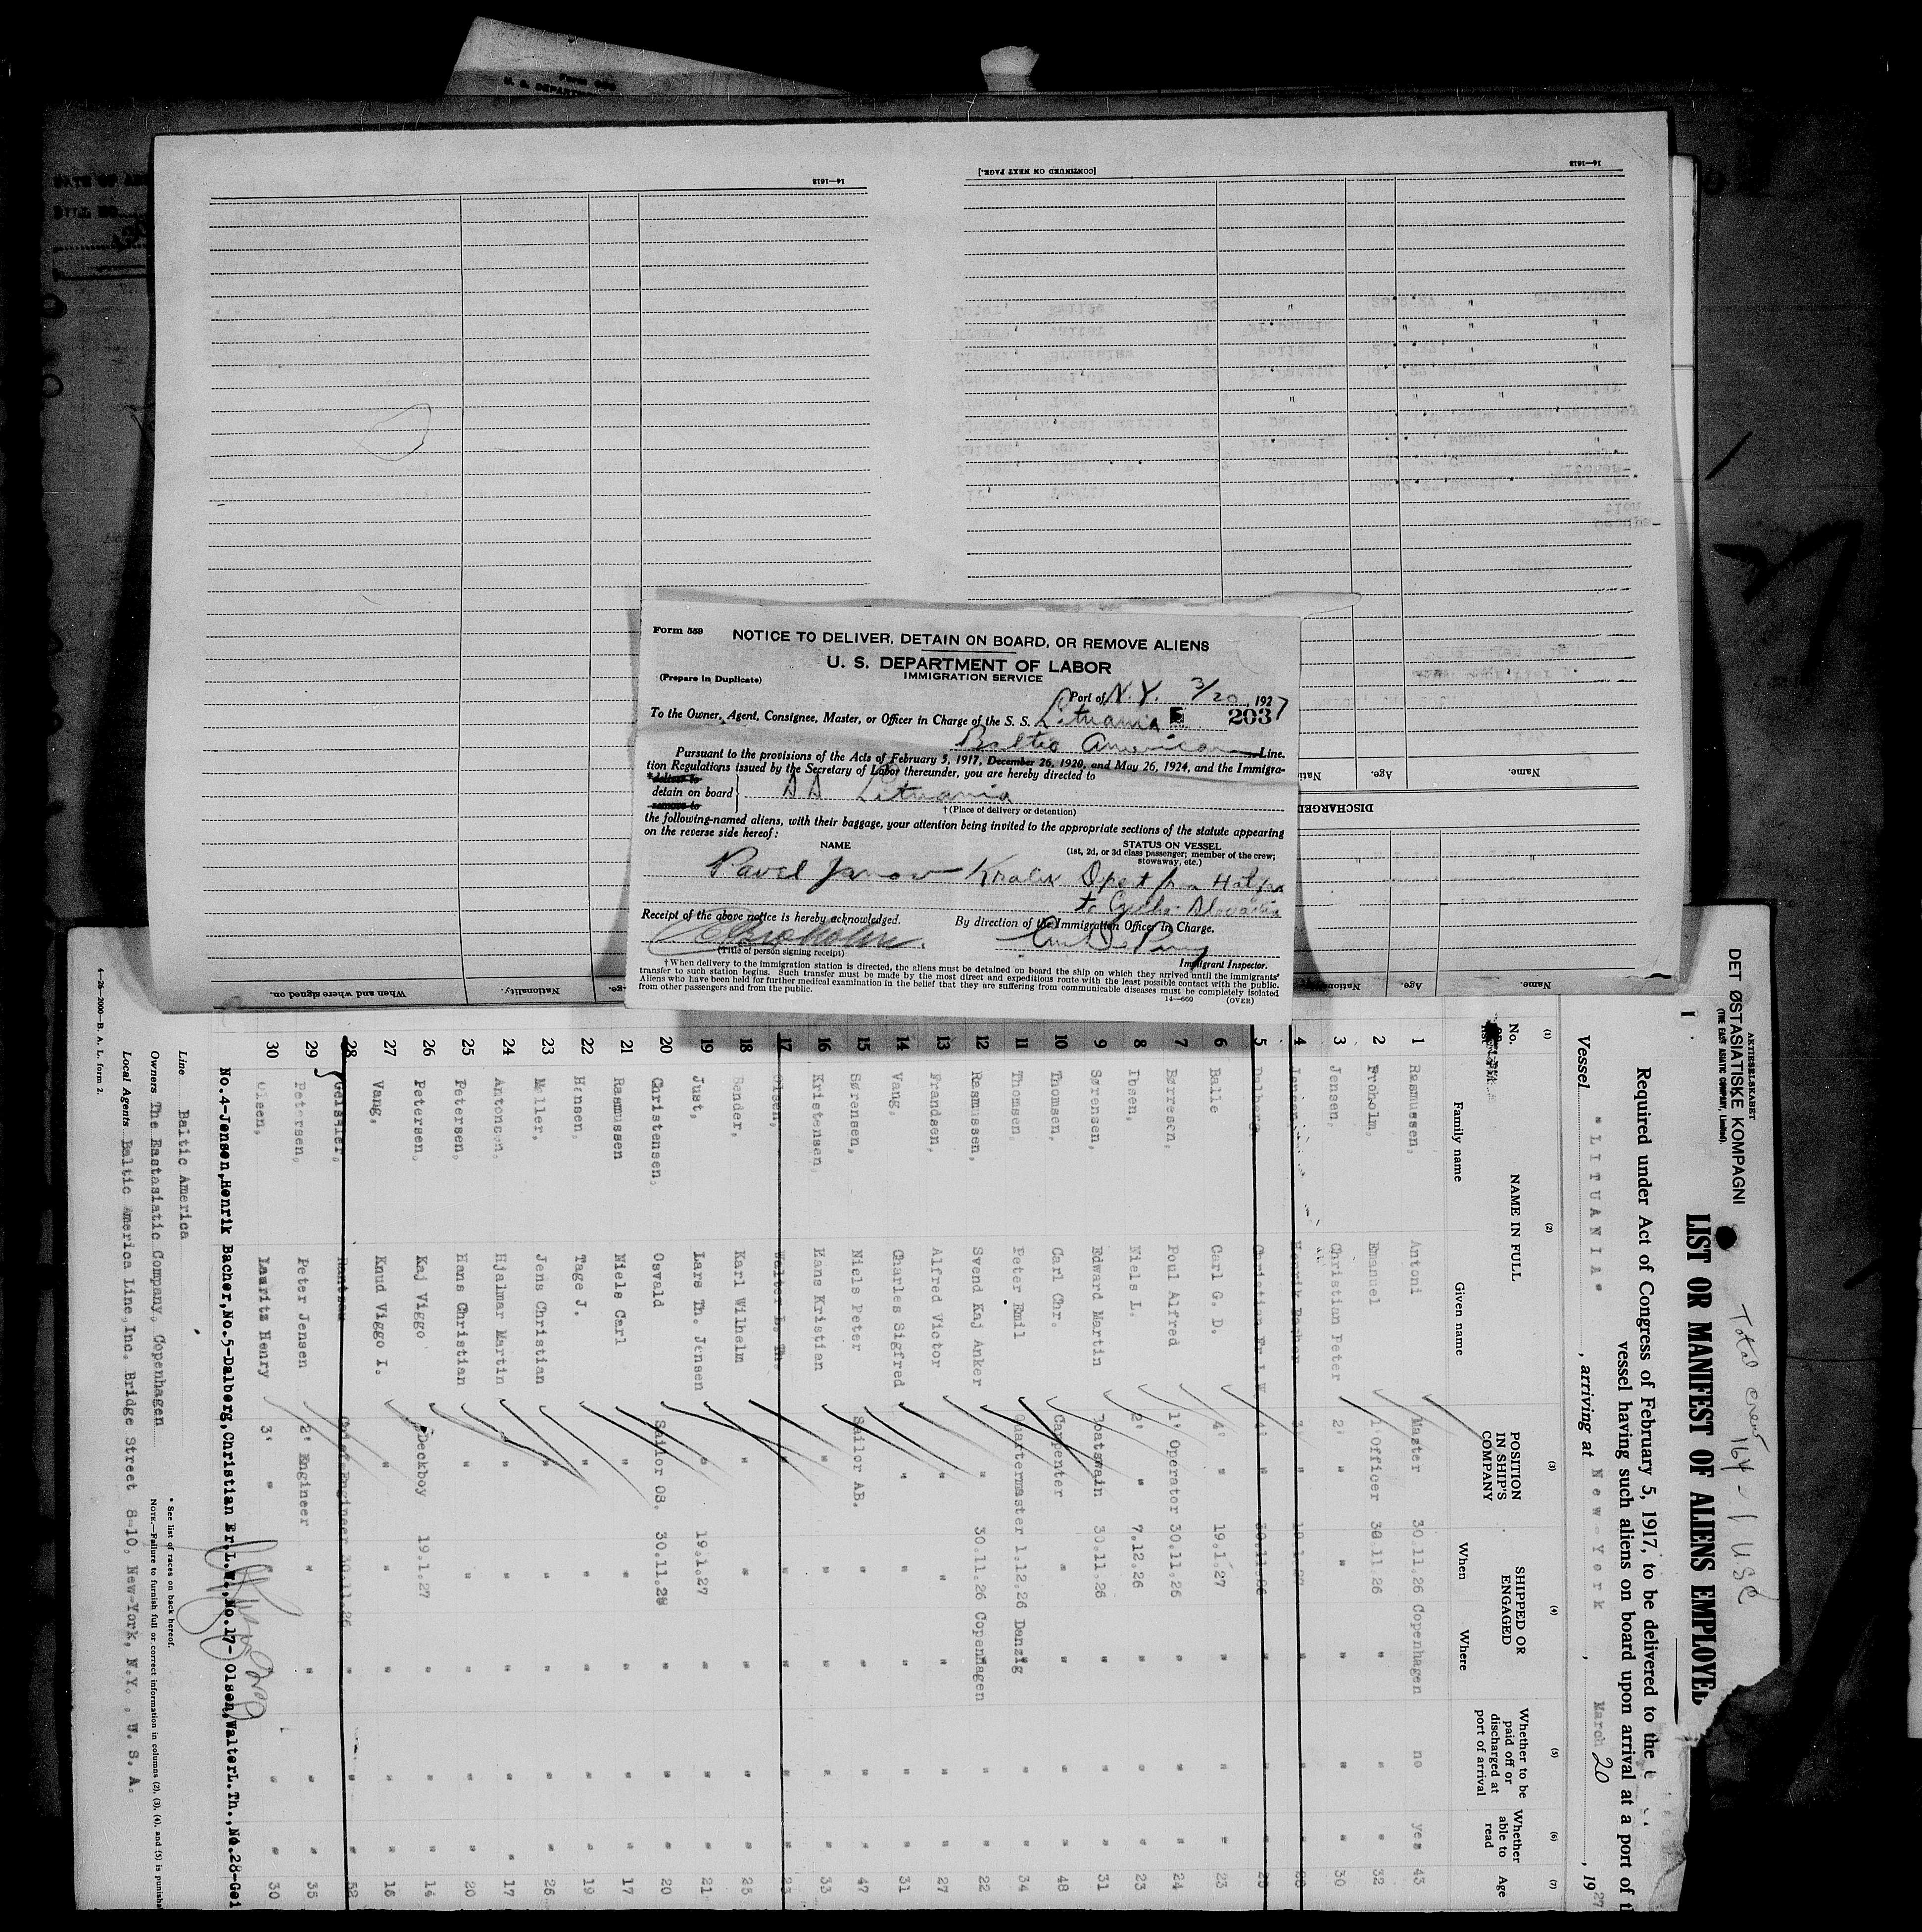 Form
U. S. DEPARTM
14—1613
[CONTINUED ON NEXT PAGE.]
14—1613
Form 559
NOTICE TO DELIVER, DETAIN ON BOARD, OR REMOVE ALIENS
U. S. DEPARTMENT OF LABOR
IMMIGRATION SERVICE
(Prepare in Duplicate)
Port of N.Y. 3/20, 1927
To the Owner, Agent, Consignee, Master, or Officer in Charge of the S. S. Lituania 2037
Baltic American Line.
Pursuant to the provisions of the Acts of February 5, 1917, December 26, 1920, and May 26, 1924, and the Immigra-
tion Regulations issued by the Secretary of Labor thereunder, you are hereby directed to
*deliver to
detain on board
remove to
SS Lituania
† (Place of delivery or detention)
the following-named aliens, with their baggage, your attention being invited to the appropriate sections of the statute appearing
on the reverse side hereof:
NAME
STATUS ON VESSEL
(1st, 2d, or 3d class passenger; member of the crew;
stowaway, etc.)
Pavel from Halifax
to
Receipt of the above notice is hereby acknowledged.
By direction of the Immigration Officer in Charge.
(Title of person signing receipt)
Immigrant Inspector.
† When delivery to the immigration station is directed, the aliens must be detained on board the ship on which they arrived until the immigrants'
transfer to such station begins. Such transfer must be made by the most direct and expeditious route with the least possible contact with the public.
Aliens who have been held for further medical examination in the belief that they are suffering from communicable diseases must be completely isolated
from other passengers and from the public.
14—660 (OVER)
Name.
Age.
DISCHARGED
When and where signed on.
Nationality.
Name.
Age.
AKTIESELSKABET
DET ØSTASIATISKE KOMPAGNI
(THE EAST ASIATIC COMPANY, Limited).
Total crew 164 - 1 USC
1
LIST OR MANIFEST OF ALIENS EMPLOYED
Required under Act of Congress of February 5, 1917, to be delivered to the
vessel having such aliens on board upon arrival at a port of t
Vessel "LITUANIA" , arriving at New-York , March 20 , 1927
(1) (2) (3) (4) (5) (6) (7)
No. NAME IN FULL POSITION IN SHIP'S COMPANY SHIPPED OR ENGAGED Whether to be paid off or discharged at port of arrival Whether able to read Age
Family name Given name When Where
1 Rasmussen, Antoni Master 30.11.26 Copenhagen no yes 43
2 Froholm, Emanuel 1' Officer 30.11.26 " " " 32
3 Jensen, Christian Peter 2' " " " " " 30
4 Jensen, Henrik Bacher 3' " 19.1.27 " " "
5 Dalberg, Christian Fr.L.W. 4' " 30.11.26 " " " 25
6 Balle Carl G. D. 4' " 19.1.27 " " " 23
7 Børresen, Poul Alfred 1' Operator 30.11.26 " " " 24
8 Ibsen, Niels L. 2' " 7.12.26 " " " 23
9 Sørensen, Edward Martin Boatswain 30.11.26 " " " 31
10 Thomsen, Carl Chr. Carpenter " " " " 48
11 Thomsen, Peter Emil Quartermaster 1.12.26 Danzig " " 34
12 Rasmussen, Svend Kaj Anker " 30.11.26 Copenhagen " " 22
13 Frandsen, Alfred Victor " " " " " 27
14 Vang, Charles Sigfred " " " " " 31
15 Sørensen, Niels Peter Sailor AB. " " " " 47
16 Kristensen, Hans Kristian " " " " " 33
17 Olsen, Walter L. Th. " " " " " 23
18 Bender, Karl Wilhelm " " " " " 25
19 Just, Lars Th. Jensen " 19.1.27 " " " 21
20 Christensen, Osvald Sailor OS. 30.11.26 " " " 20
21 Rasmussen Niels Carl " " " " " 17
22 Hansen, Tage J. " " " " " 19
23 Møller, Jens Christian " " " " " 26
24 Antonsen, Hjalmar Martin " " " " " 17
25 Petersen, Hans Christian " " " " " 20
26 Petersen, Kaj Viggo Deckboy 19.1.27 " " " 14
27 Vang, Knud Viggo I. " " " " " 16
28 Geissler, Rantzau Chief Engineer 30.11.26 " " " 52
29 Petersen, Peter Jensen 2' Engineer " " " " 35
30 Olsen, Lauritz Henry 3' " " " " " 30
No.4-Jensen,Henrik Bacher,No.5-Dalberg,Christian Fr.L.W.,No.17-Olsen,WalterL.Th.,No.28-Gei
Line Baltic America
Owners The Eastasiatic Company, Copenhagen
Local Agents Baltic America Line,Inc. Bridge Street 8-10, New-York, N.Y., U. S. A.
* See list of races on back hereof.
NOTE.—Failure to furnish full or correct information in columns (2), (3), (4), and (5) is punisha
4—26—2000—B. A. L. form 2.